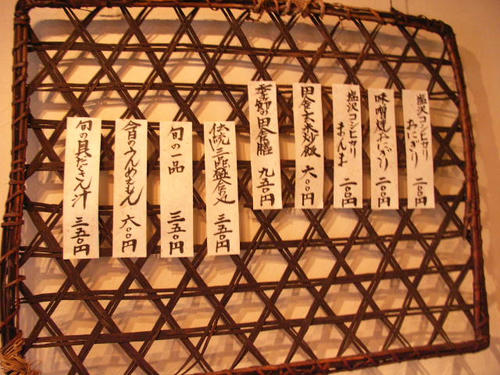 塩沢コシヒカリ
おにぎり 二〇〇円
味噌焼おにぎり 二〇〇円
塩沢コシヒカリ
まんま 二〇〇円
田舎玄米炒飯 六〇〇円
季節の田舎膳 九五〇円
伝統三品 三五〇円
旬の一品 三五〇円
今日の 六〇〇円
旬の具だくさん汁 三五〇円